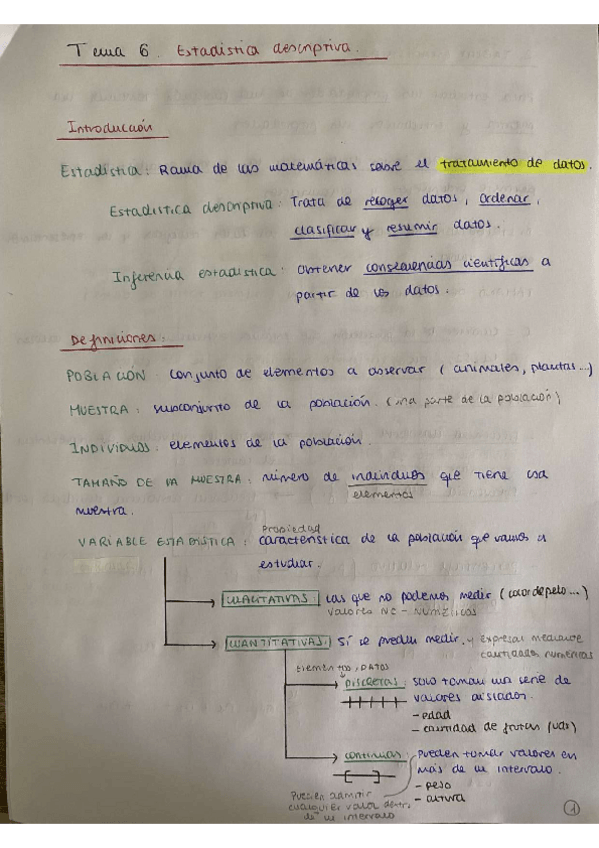 Tema 6. Estadística descriptiva.
Introducción
Estadística: Rama de las matemáticas sobre el tratamiento de datos.
Estadística descriptiva: Trata de recoger datos, ordenar,
clasificar y resumir datos.
Inferencia estadística: obtener consecuencias científicas a
partir de los datos.
Definiciones:
POBLACIÓN: conjunto de elementos a observar (animales, plantas...)
MUESTRA: subconjunto de la población. (una parte de la población)
INDIVIDUOS: elementos de la población.
TAMAÑO DE LA MUESTRA: número de individuos que tiene esa
elementos
muestra.
Propiedad
VARIABLE ESTADÍSTICA: característica de la población que vamos a
estudiar.
CUALITATIVAS: Las que no podemos medir (color de pelo...)
valores NO - NUMÉRICOS
CUANTITATIVAS: Sí se pueden medir, y expresar mediante
cantidades numéricas
elementos, DATOS
DISCRETAS: solo toman una serie de
valores aislados.
- edad
- cantidad de frutas (uds)
continuas: pueden tomar valores en
más de un intervalo.
- peso
- altura
Pueden admitir
cualquier valor dentro
de un intervalo
1